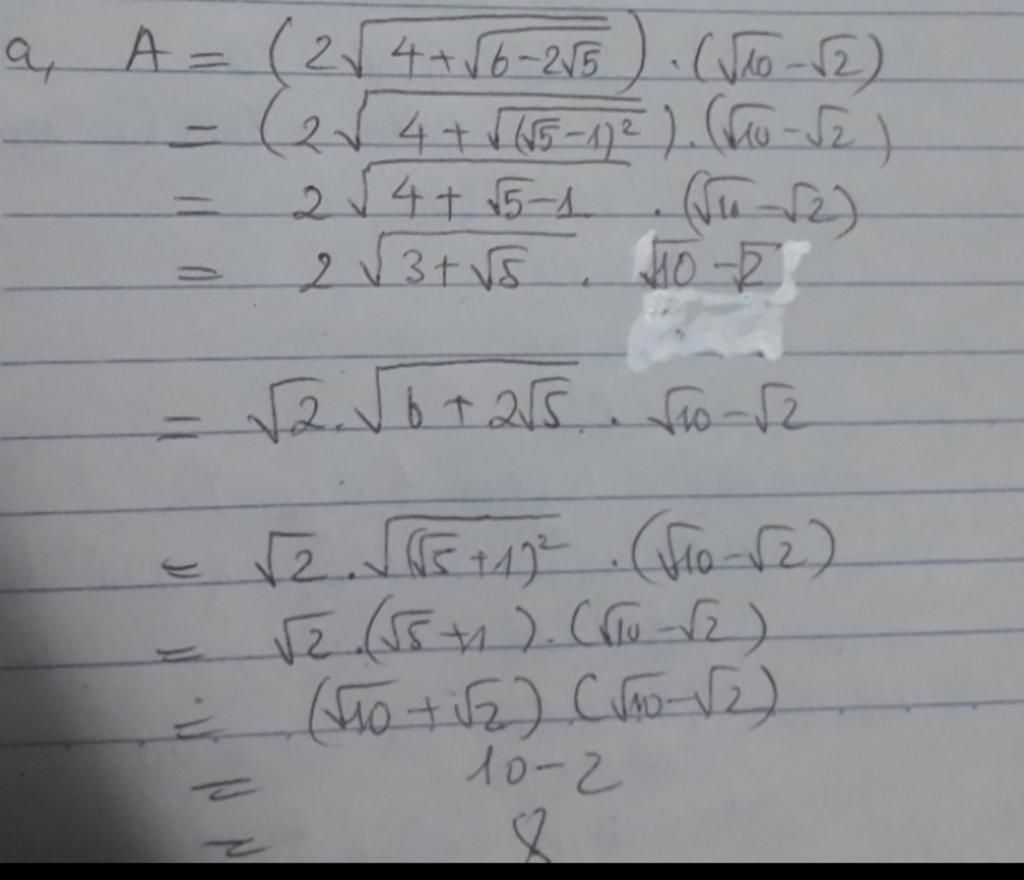 a, A = (2√(4+√(6-2√5))) . (√10 - √2)
= (2√(4+√((√5-1)²))) . (√10 - √2)
= 2√(4+√5-1) . (√10 - √2)
= 2√(3+√5) . √10 - √2
= √2 . √(6+2√5) . √10 - √2
= √2 . √((√5+1)²) . (√10 - √2)
= √2 . (√5+1) . (√10 - √2)
= (√10 + √2) . (√10 - √2)
= 10 - 2
= 8